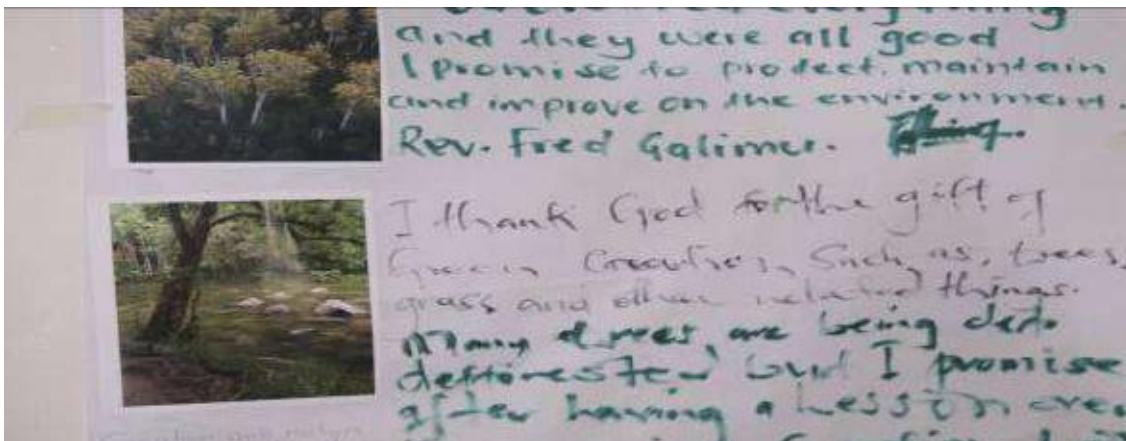 everything
and they were all good
I promise to protect, maintain
and improve on the environment.
Rev. Fred Galimer.
I thank God for the gift of
Green Creation, Such as, trees,
grass and other related things.
Many trees, are being def.
defforested but I promise
after having a Lesson